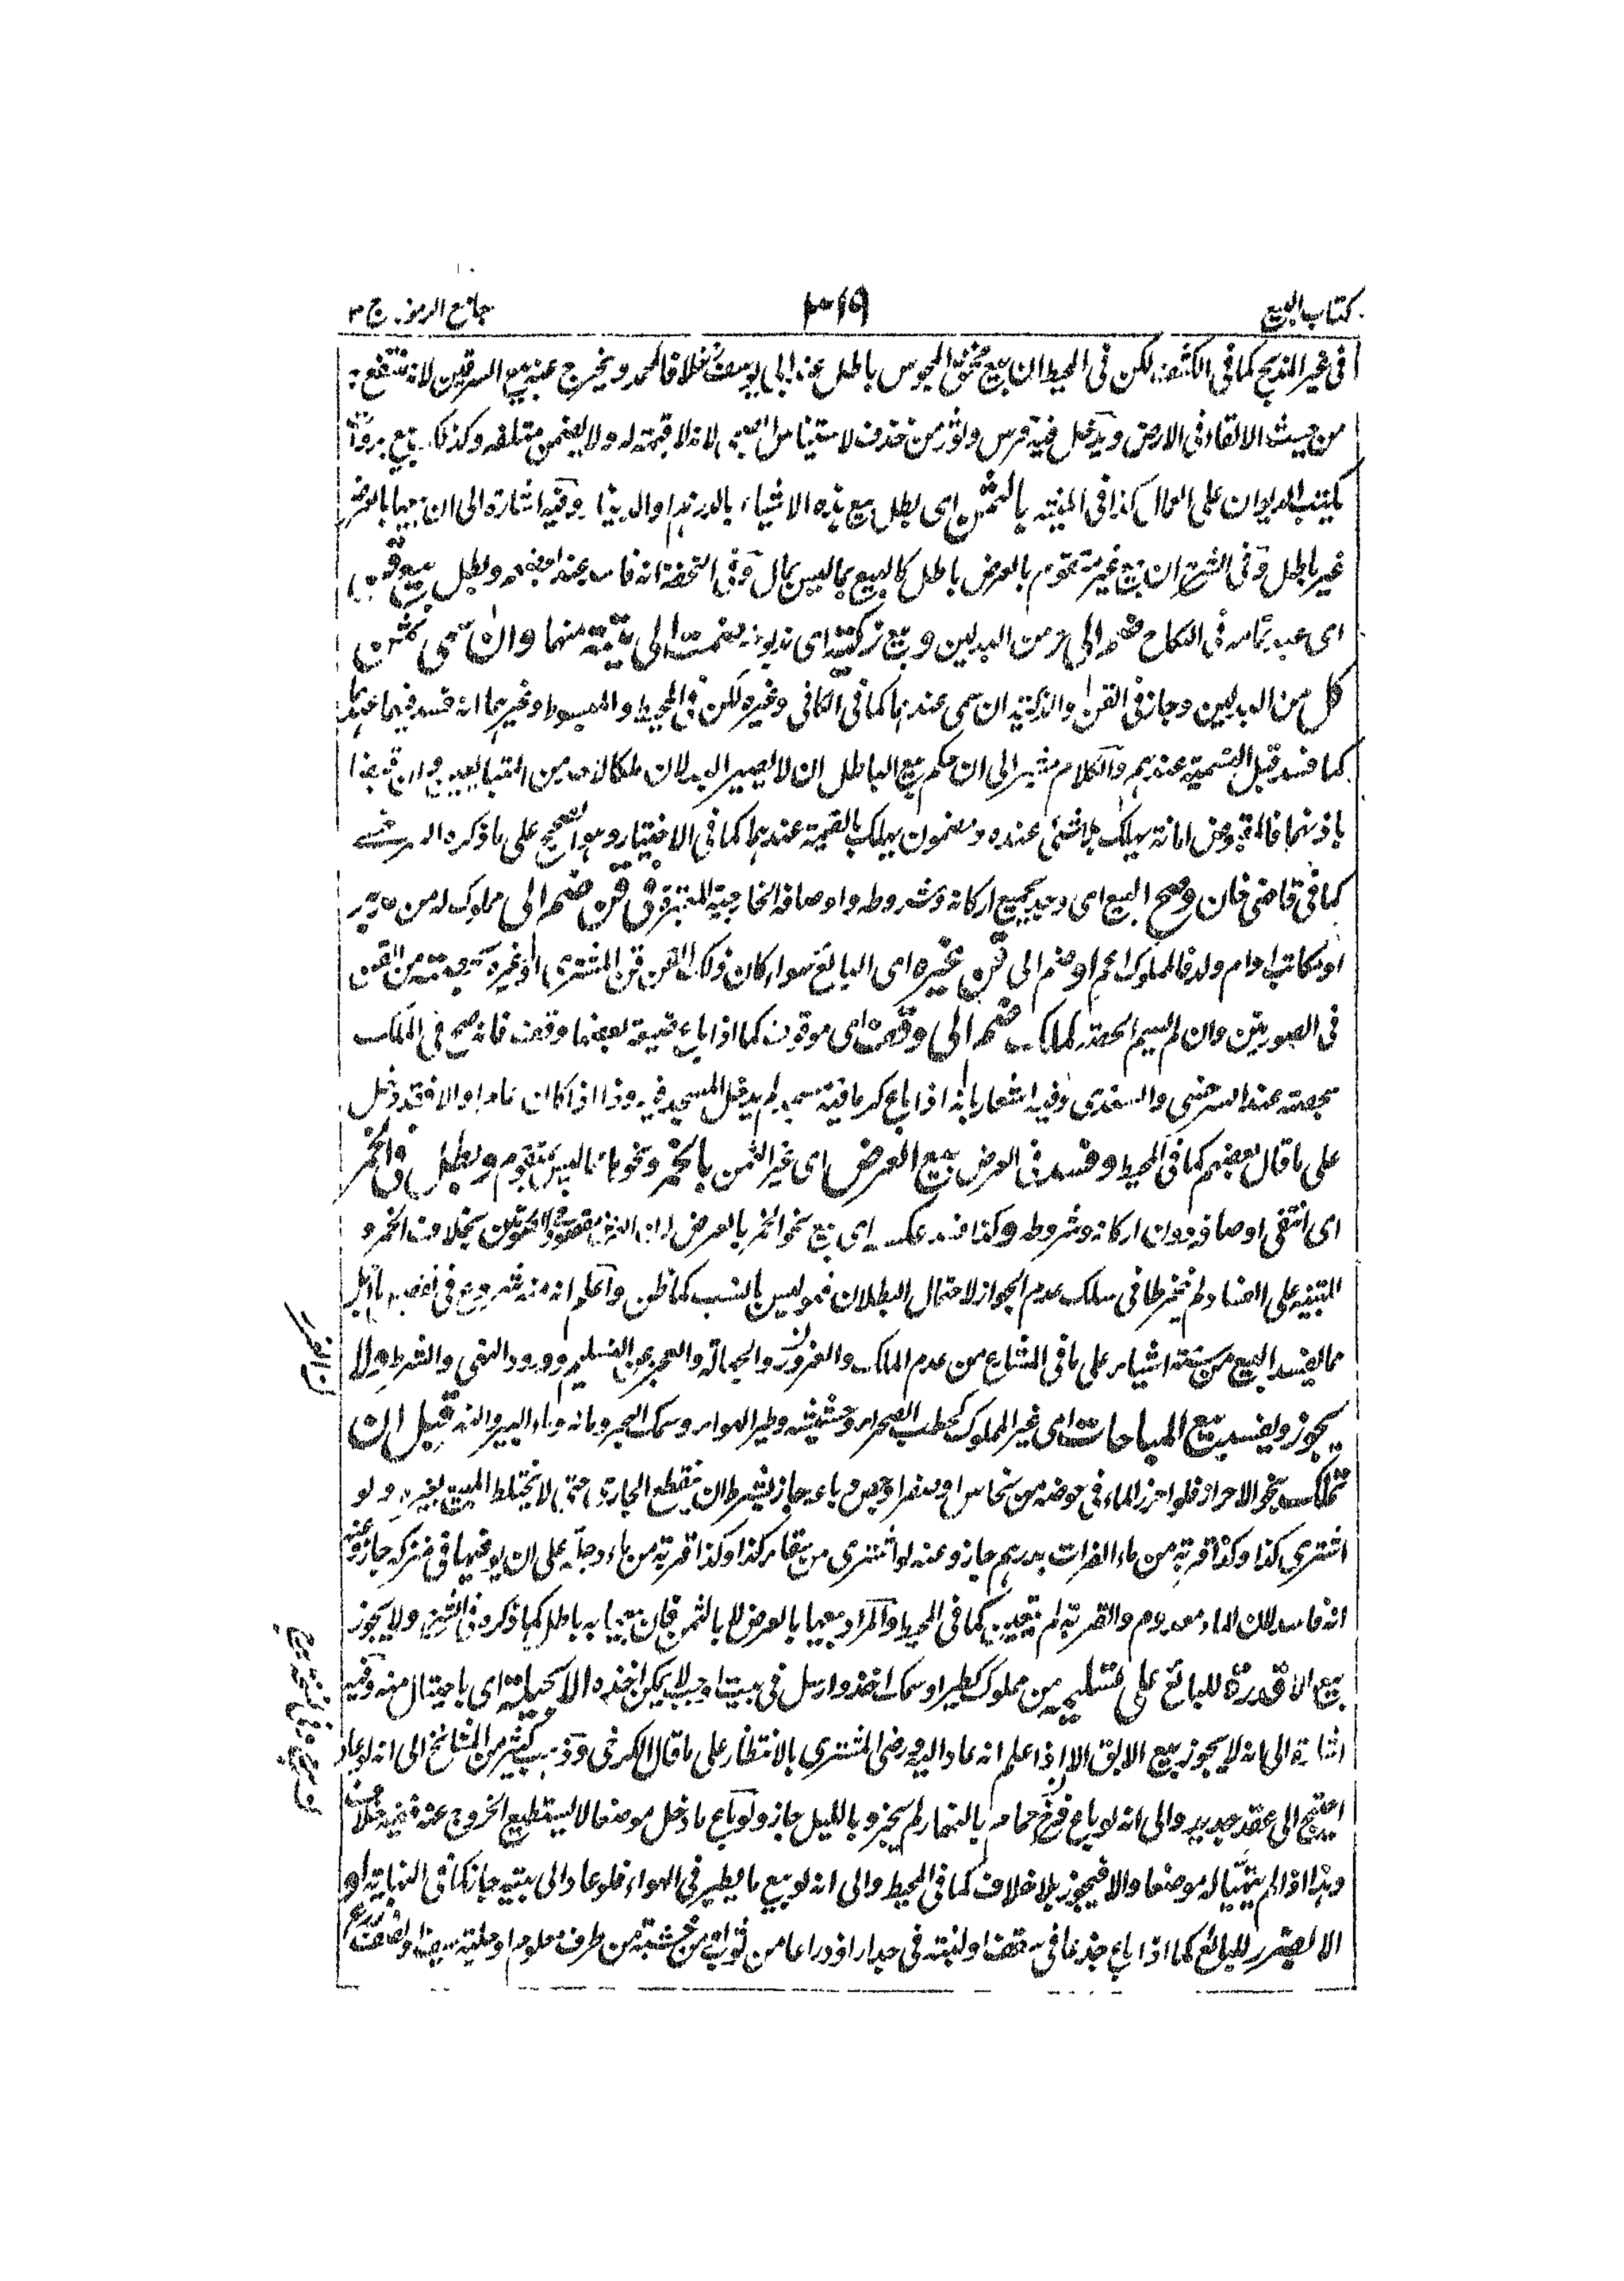 كتاب البيع
٣١٩
جامع الرموز ج ٣
فى غير الذبح كما فى الكشف لكن فى المحيط ان بيع مخنوق المجوس باطل عند ابى يوسف خلافا لمحمد ويخرج عنه بيع السرقين لانه منتفع به
من حيث الالقاء فى الارض ويدخل فيه فرس وثور من خذف لاستيناس الصبى لانه لا قيمة له ولا يضمن متلفه وكذا بيع
يكتب الديوان على العمال كذا فى المنية بالثمن اى بطل بيع هذه الاشياء بالدرهم او الدينار وفيه اشارة الى ان بيعها بالعرض
غير باطل وفى الشرح ان بيع غير متقوم بالعرض باطل كالبيع بما ليس بمال وفى التحفة انه فاسد عند بعضهم وبطل بيع قن
اى عبد بتمامه فى النكاح ضم الى حر من البدلين وبيع زكية اى مذبوحة ضمت الى ميتة منهما وان سمى ثمن
كل من البدلين وجاز فى القن والذكية ان سمى عندهما كما فى الكافى وغيره لكن فى المحيط والمبسوط وغيرهما انه فسد فيهما عندهما
كما فسد قبل التسمية عندهم والكلام مشير الى ان حكم بيع الباطل ان لا يصير البدلان ملكا لاحد من المتبايعين وان قبضا
باذنهما فالمقبوض امانة يهلك بلا شئ عنده ومضمون يهلك بالقيمة عندهما كما فى الاختيار وهو الصحيح على ما ذكره السرخسى
كما فى قاضى خان وصح البيع اى وجد بجميع اركانه وشروطه واوصافه الخارجية المعتبرة فى قن ضم الى مملوك له من مدبر
او مكاتب او ام ولد فالمملوك اعم او ضم الى قن غيره اى البائع سواء كان ذلك القن قن المشترى او غيره بحصته من الثمن
فى الصورتين وان لم يسم الحصة كملك ضم الى وقف اى موقوف كما اذا باع ضيعة بعضها وقف فانه صح فى الملك
بحصته عند السرخسى والسغدى وفيه اشعار بانه اذا باع كرما فيه مسجد لم يدخل المسجد فيه وهذا اذا كان عامرا والا فقد دخل
على ما قال بعضهم كما فى المحيط وفسد فى العرض بيع العرض اى غير الثمن بالخمر ونحوها مما ليس بمتقوم وبطل فى الخمر
اى انتفى اوصافه دون اركانه وشروطه وكذا فسد عكسه اى بيع نحو الخمر بالعرض بخلاف الخمر و
التنبيه على الفساد لم ينخرطا فى سلك عدم الجواز لاحتمال البطلان فهو ليس بالنسب كما ظن واعلم انه شروع فى تفصيل
مما يفسد البيع من ستة اشياء على ما فى المشارع من عدم الملك والغرور والجهالة والعجز عن التسليم وورود النهى والشرط ولا
يجوز ويفسد بيع المباحات اى غير المملوك كحطب الصحراء وحشيشه وطير الهواء وسمك البحر ومائه وماء البير والنهر قبل ان
تتملك بنحو الاحراز فلو احرز الماء فى حوضه من نحاس او صفر او جص وباعه جاز بشرط ان ينقطع الجارى حتى لا يختلط المبيع بغيره ولو
اشترى كذا وكذا قربة من ماء الفرات بدرهم جاز وعنه لو اشترى من سقاء كذا وكذا قربة من ماء دجلة على ان يوفيها فى منزله جاز وعنه
انه فاسد لان الماء معدوم والقربة لم تتعين كما فى المحيط والمراد بيعها بالعرض لا بالثمن فان بيعها به باطل كما ذكره فى الشرح ولا يجوز
بيع الا قدرة للبائع على تسليمه من مملوك كطير او سمك اخذ وارسل فى بيت او جب لا يمكن اخذه الا بحيلة اى باحتيال منه وفيه
اشارة الى انه لا يجوز بيع الابق الا اذا علم انه عاد اليه ورضى المشترى بالانتظار على ما قال الكرخى وذهب كثير من المشائخ الى انه لو عاد
احتيج الى عقد جديد والى انه لو باع فرخ حمامه بالنهار لم يجز وبالليل جاز ولو باع ما دخل موضعا لا يستطيع الخروج عنه ففيه خلاف
وهذا اذا لم يتهيأ له موضعا والا فيجوز بلا خلاف كما فى المحيط والى انه لو بيع ما يطير فى الهواء فلو عاد الى بيته جاز كما فى النهاية او
الا لضرر للبائع كما اذا باع جذعا فى سقف او لبنة فى جدار او ذراعا من ثواب من خشبة من طرف معلوم او حلية سيف